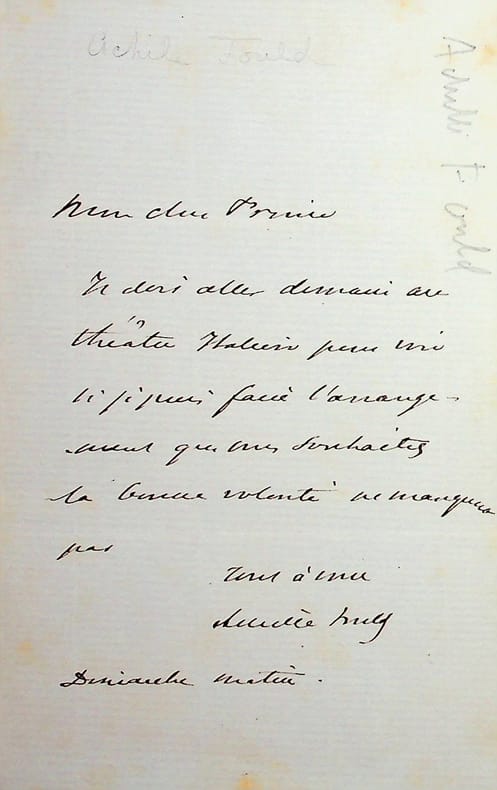 Achille Fould
Achille Fould
Mon cher Prince
Je dois aller demain au
théâtre Italien pour voir
si je puis faire l'arrange-
ment que vous souhaitez
la bonne volonté ne manquera
pas
Tout à vous
Achille Fould
Dimanche matin.